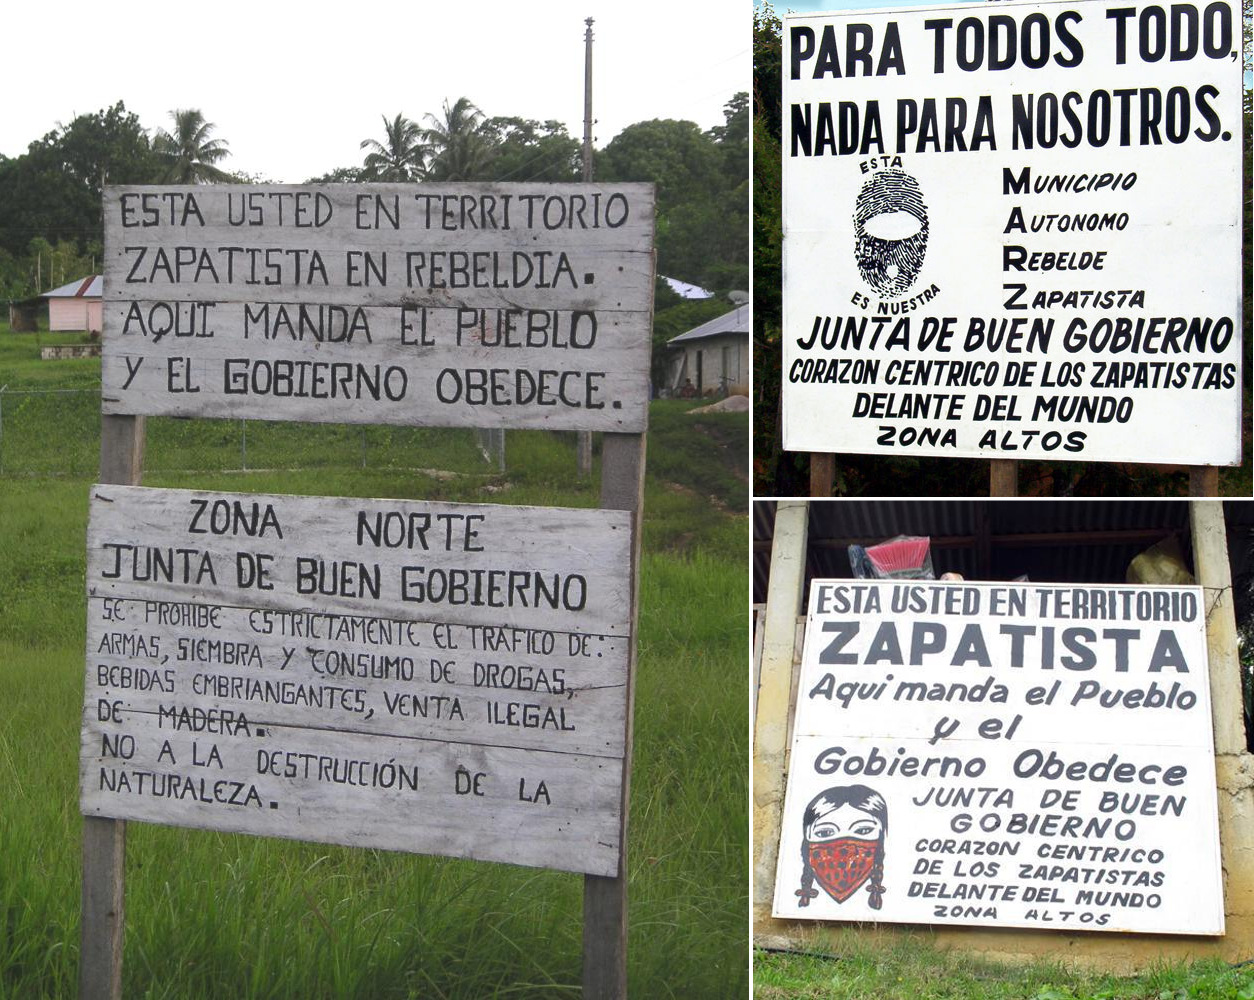 ESTA USTED EN TERRITORIO
ZAPATISTA EN REBELDIA.
AQUI MANDA EL PUEBLO
Y EL GOBIERNO OBEDECE.
ZONA NORTE
JUNTA DE BUEN GOBIERNO
SE PROHIBE ESTRICTAMENTE EL TRAFICO DE:
ARMAS, SIEMBRA Y CONSUMO DE DROGAS,
BEBIDAS EMBRIANGANTES, VENTA ILEGAL
DE MADERA.
NO A LA DESTRUCCIÓN DE LA
NATURALEZA.
PARA TODOS TODO,
NADA PARA NOSOTROS.
ESTA
ES NUESTRA
MUNICIPIO
AUTONOMO
REBELDE
ZAPATISTA
JUNTA DE BUEN GOBIERNO
CORAZON CENTRICO DE LOS ZAPATISTAS
DELANTE DEL MUNDO
ZONA ALTOS
ESTA USTED EN TERRITORIO
ZAPATISTA
Aqui manda el Pueblo
y el
Gobierno Obedece
JUNTA DE BUEN
GOBIERNO
CORAZON CENTRICO
DE LOS ZAPATISTAS
DELANTE DEL MUNDO
ZONA ALTOS